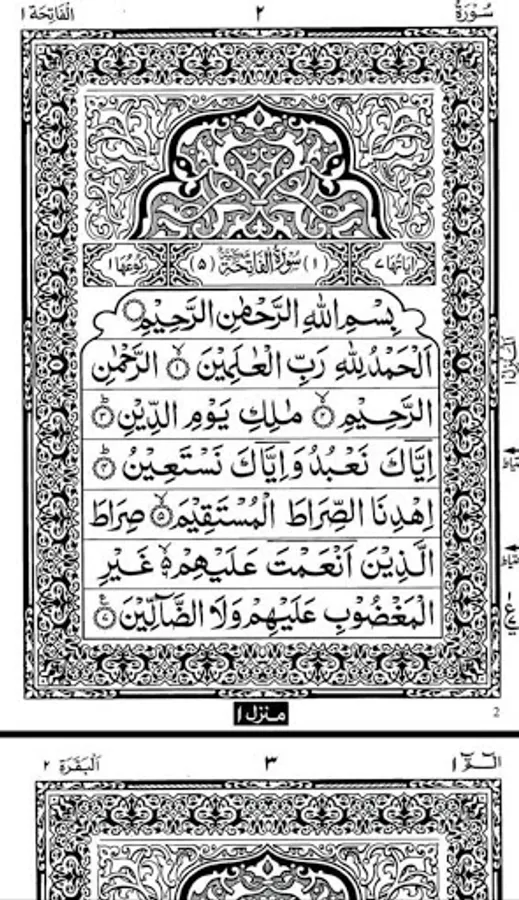 سُوْرَةُ ٢ اَلْفَاتِحَة ١
اٰيَاتُهَا ٧ (١) سُوْرَةُ الْفَاتِحَةِ مَكِّيَّةٌ (٥) رُكُوْعُهَا ١
بِسْمِ اللّٰهِ الرَّحْمٰنِ الرَّحِيْمِ
اَلْحَمْدُ لِلّٰهِ رَبِّ الْعٰلَمِيْنَ ۙ﴿١﴾ الرَّحْمٰنِ
الرَّحِيْمِ ۙ﴿٢﴾ مٰلِكِ يَوْمِ الدِّيْنِ ؕ﴿٣﴾
اِيَّاكَ نَعْبُدُ وَاِيَّاكَ نَسْتَعِيْنُ ؕ﴿٤﴾
اِهْدِنَا الصِّرَاطَ الْمُسْتَقِيْمَ ۙ﴿٥﴾ صِرَاطَ
الَّذِيْنَ اَنْعَمْتَ عَلَيْهِمْ ۙ۬ غَيْرِ
الْمَغْضُوْبِ عَلَيْهِمْ وَلَا الضَّآلِّيْنَ ﴿٧﴾
منزل ١
2
الٓمّٓ ١ ٣ اَلْبَقَرَة ٢